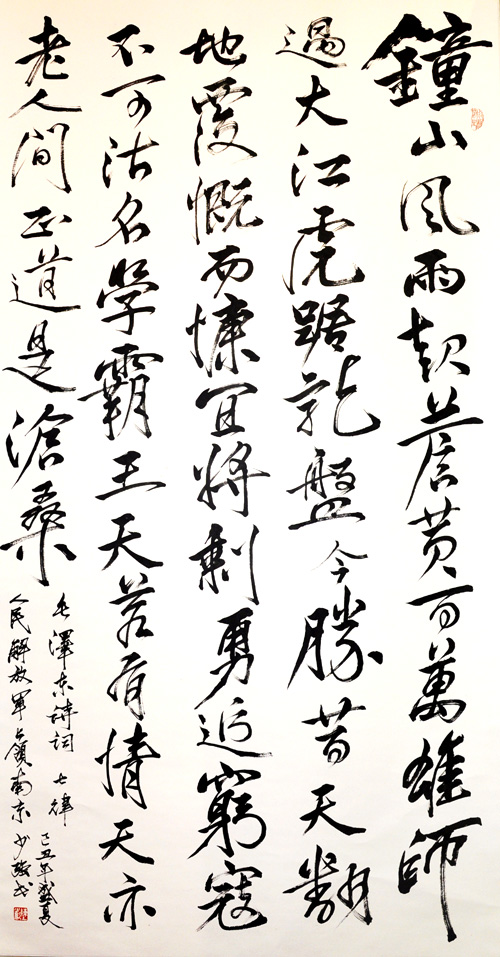 鐘山風雨起蒼黄百萬雄師
過大江虎踞龍盤今勝昔天翻
地覆慨而慷宜將剩勇追窮寇
不可沽名學霸王天若有情天亦
老人間正道是滄桑
毛澤東詩詞 七律
人民解放軍占領南京
己丑年盛夏